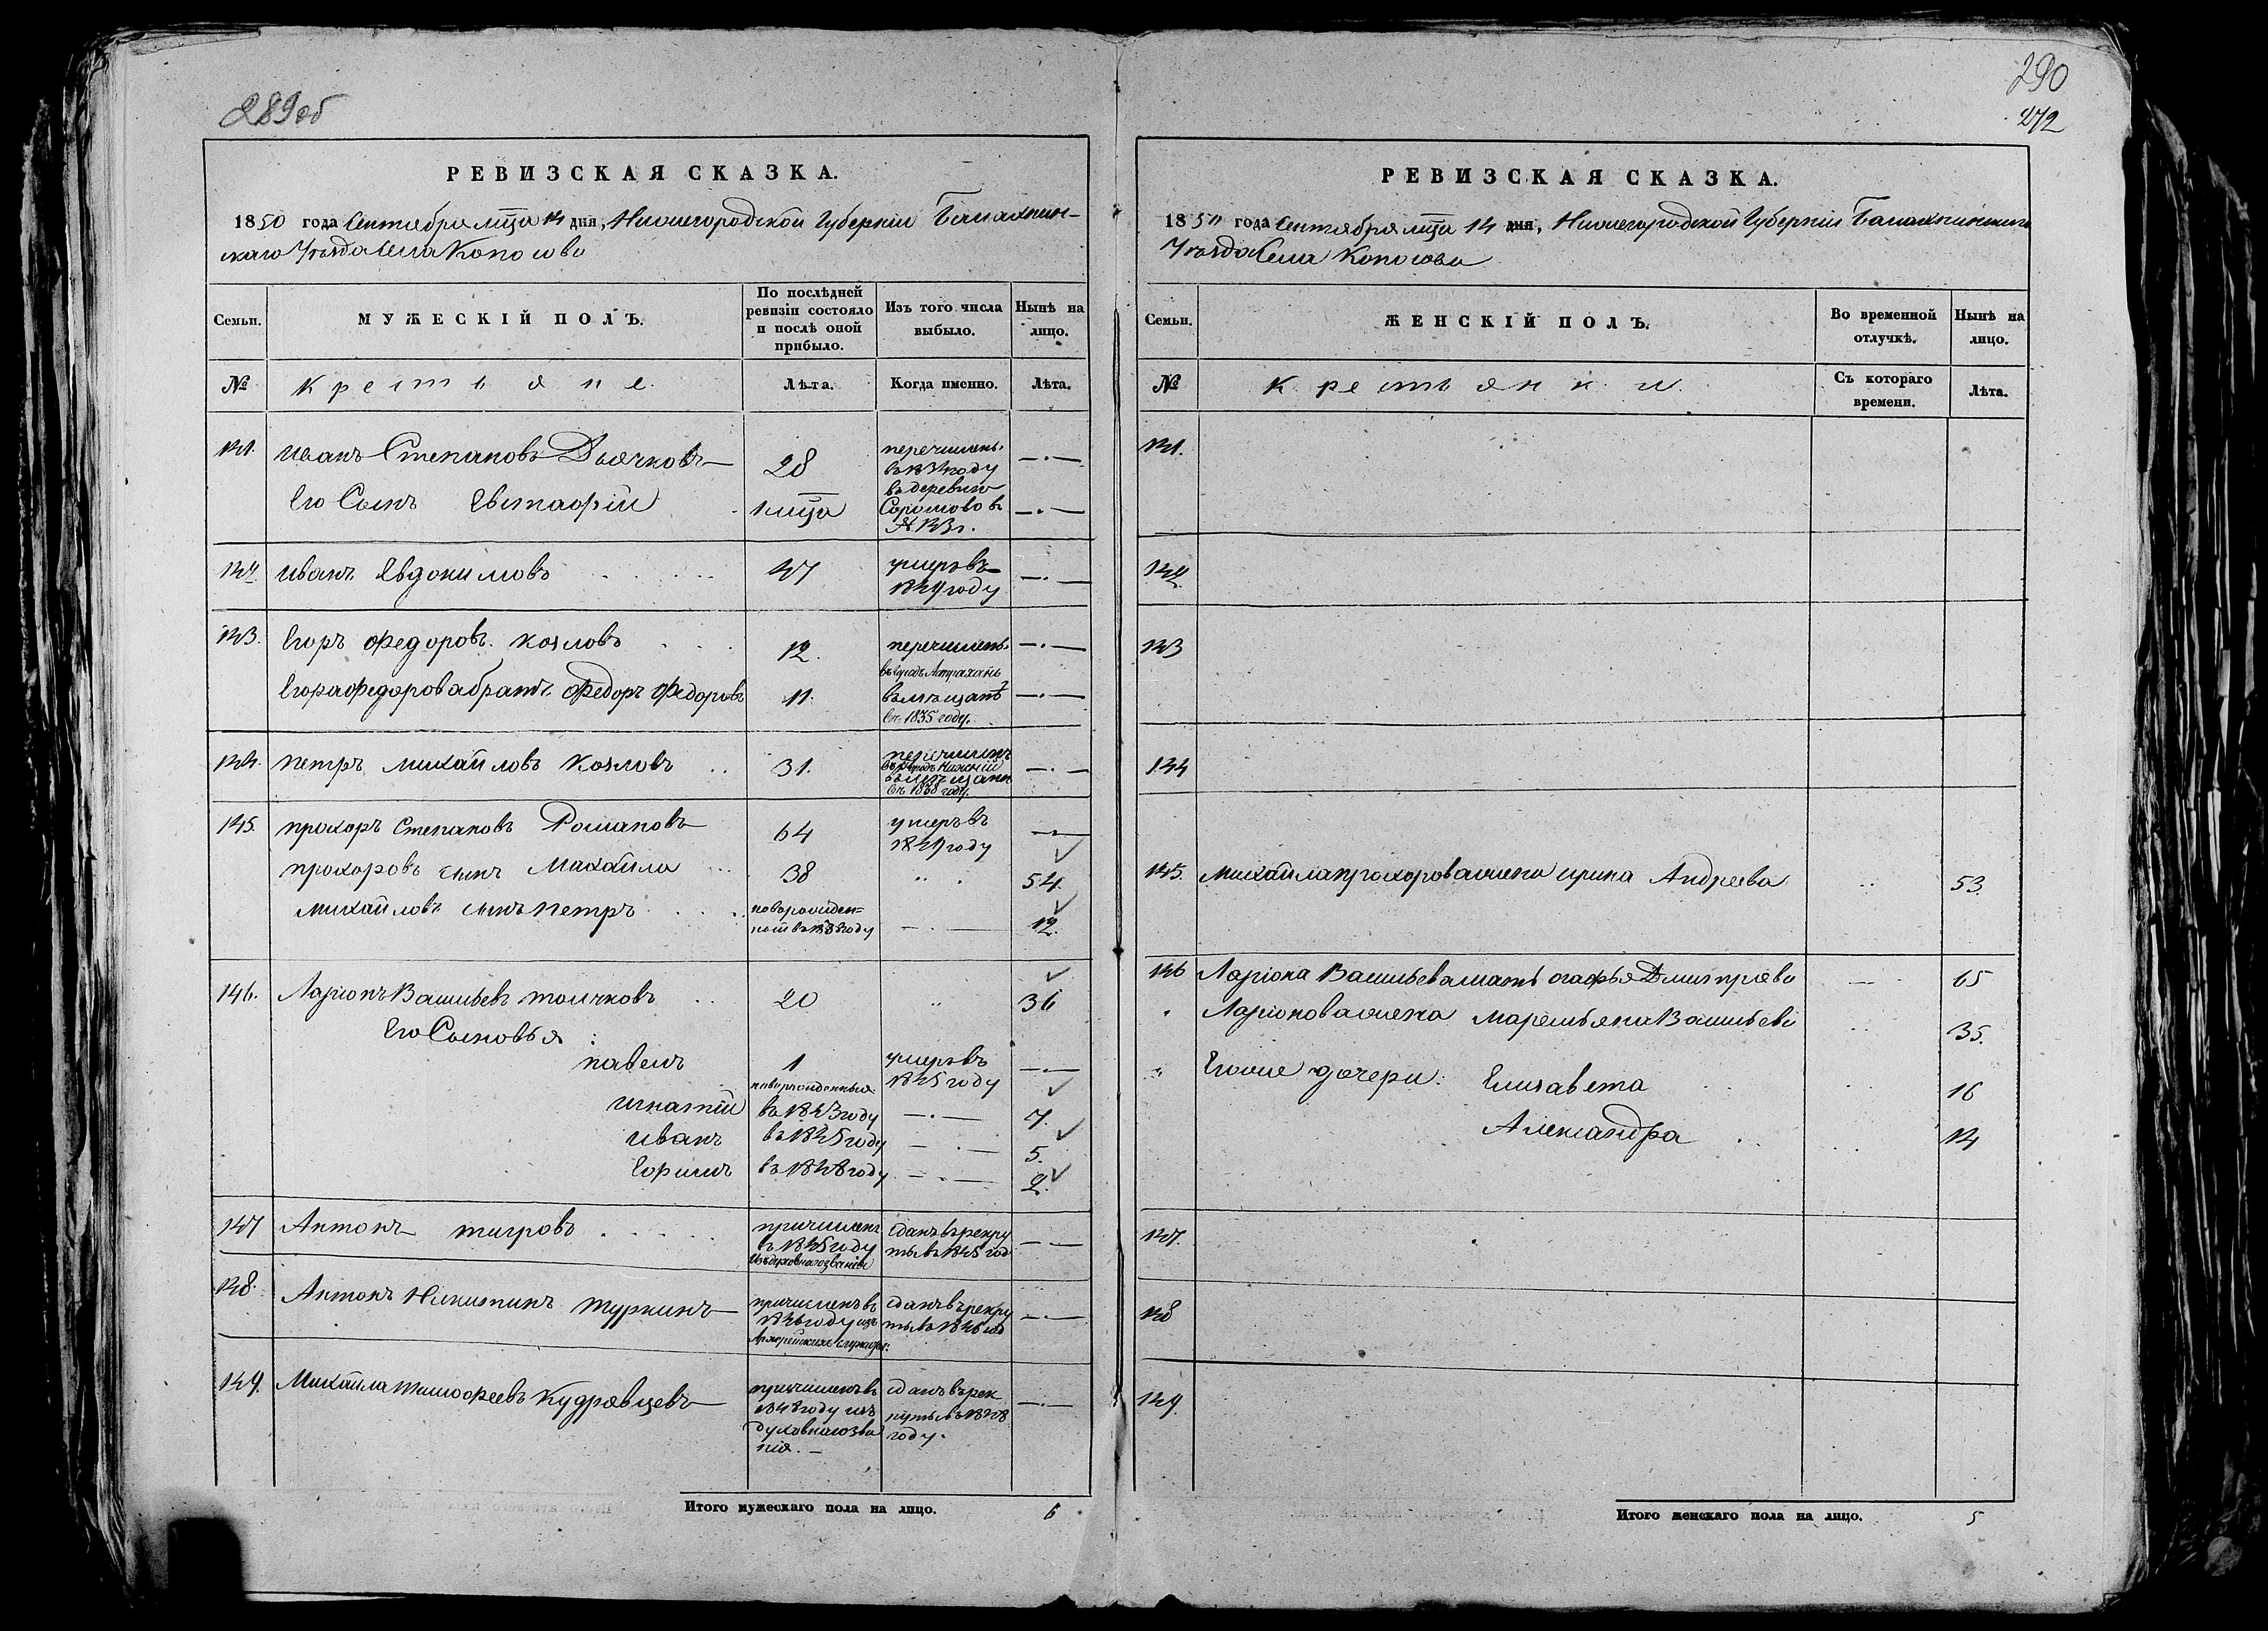 289об
РЕВИЗСКАЯ СКАЗКА.
1850 года Сентября мца 14 дня, Нижегородской Губерніи Балахнин-
скаго Уѣзда Села Копосова
Семьи.
МУЖЕСКІЙ ПОЛЪ.
По послѣдней ревизіи состояло и послѣ оной прибыло.
Изъ того числа выбыло.
Нынѣ на лицо.
№
Крестьяне.
Лѣта.
Когда именно.
Лѣта.
141. Иванъ Степановъ Дьячковъ 28 перечисленъ
въ году
въ деревню
Его Сынъ Евстафій 1 мца Сормово въ
№
142 Иванъ Евдокимовъ 47 умеръ въ
1849 году
143. Егоръ Федоровъ Козловъ 12. перечисленъ
въ городъ Астрахань
Егора Федорова братъ Федоръ Федоровъ 11. въ мѣщанѣ
въ 1835 году.
144. Петръ Михайловъ Козловъ 31. перечисленъ
въ городъ Нижній
въ мѣщане
въ 1838 году.
145. Прохоръ Степановъ Романовъ 64 умеръ въ
1849 году
Прохоровъ сынъ Михайла 38 54.
Михайловъ сынъ Петръ новорожден-
ной въ 1838 году 12.
146. Ларіонъ Васильевъ Толчковъ 20 36
Его Сыновья:
Павелъ 1 умеръ въ
1845 году
новорожденныя
Игнатій въ 1843 году 7.
Иванъ въ 1845 году 5.
Ефимъ въ 1848 году 2.
147 Антонъ Тигровъ причисленъ сданъ въ рекру
въ 1845 году ты въ 1845 год
изъ духовнаго званія
148. Антонъ Никитинъ Туркинъ причисленъ въ сданъ въ рекру
1846 году изъ ты въ 1846 год
Архерейскихъ служи
149. Михайла Тимофеевъ Кудрявцевъ причисленъ въ сданъ въ рек
1848 году изъ руты въ 1848
духовнаго зва году.
нія.
Итого мужескаго пола на лицо. 6
290
272
РЕВИЗСКАЯ СКАЗКА.
1850 года Сентября мца 14 дня, Нижегородской Губерніи Балахнинскаго
Уѣзда Села Копосова
Семьи.
ЖЕНСКІЙ ПОЛЪ.
Во временной отлучкѣ.
Нынѣ на лицо.
№
Крестьянки.
Съ котораго времени.
Лѣта.
141.
142.
143
144
145. Михайла Прохорова жена Ирина Андреева 53.
146 Ларіона Васильева мать Агафья Дмитріева 65
Ларіонова жена Маремьяна Васильева 35.
Его же дочери: Елизавета 16
Александра 14
147.
148
149.
Итого женскаго пола на лицо. 5